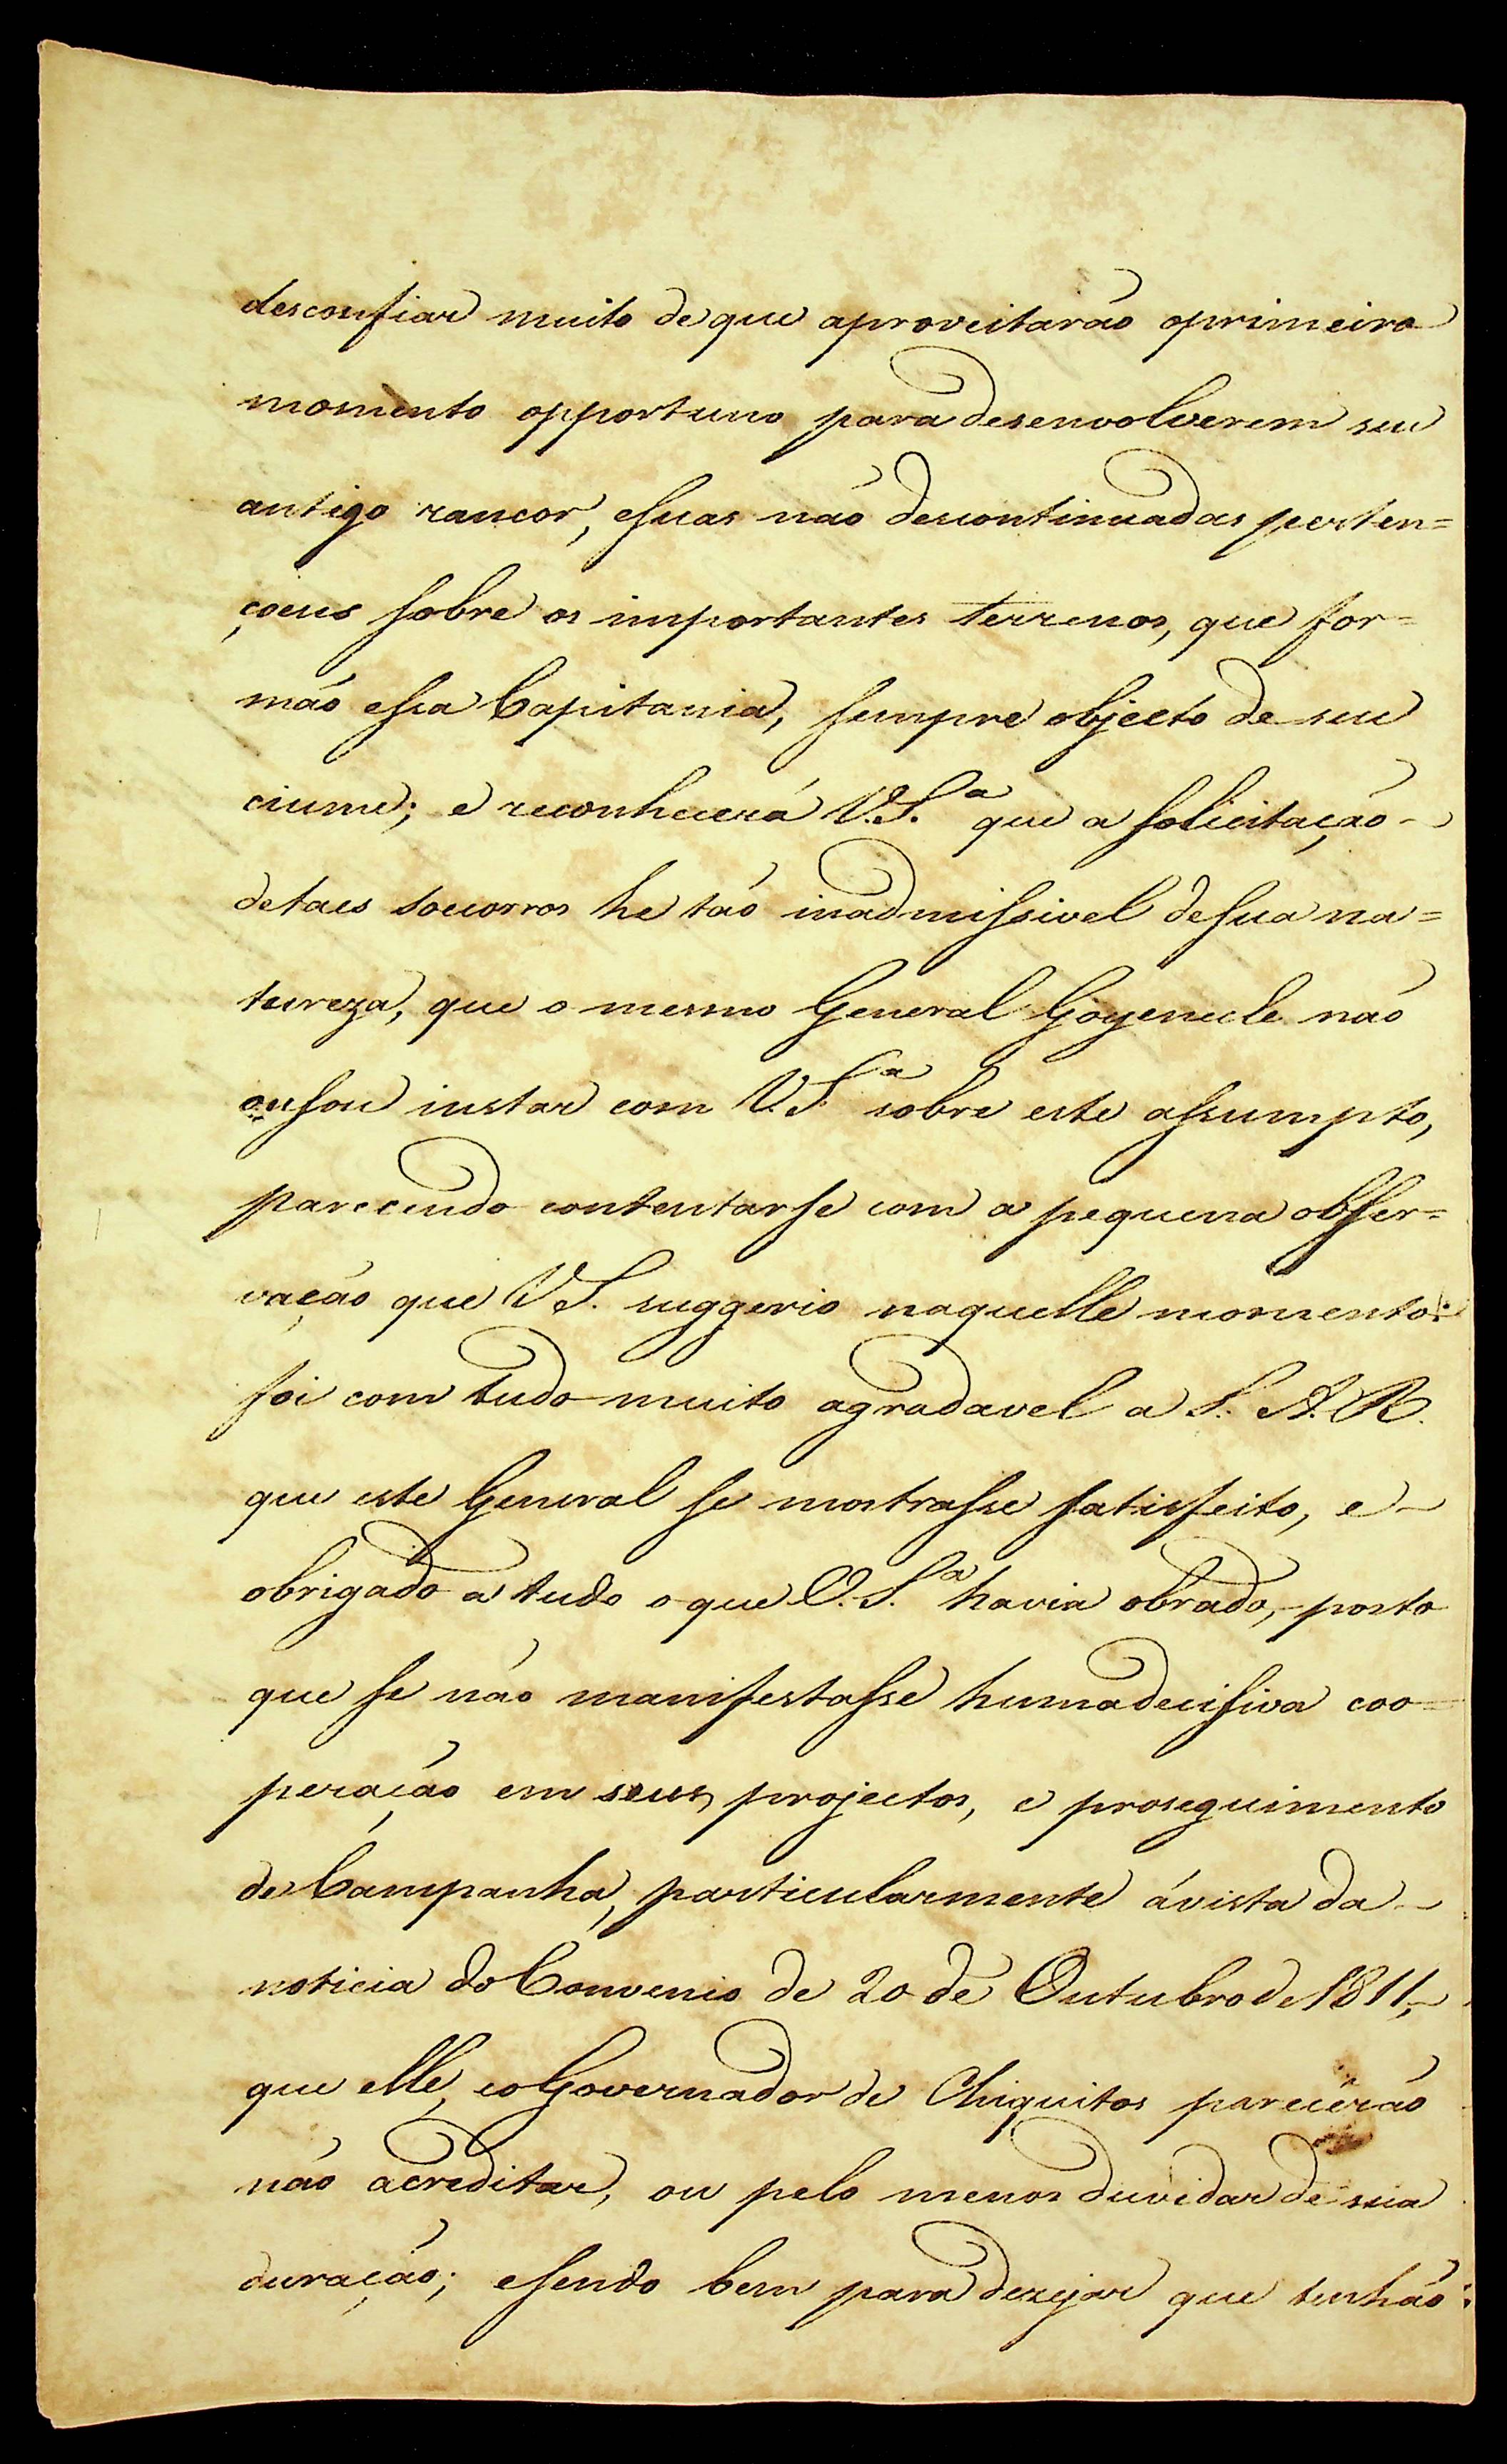 desconfiar muito de que aproveitaráõ oprimeiro
momento opportuno para desenvolverem seu
antigo rancor, esuas não descontinuadas perten=
çoens sobre os importantes terrenos, que for=
mão essa Capitania, sempre objecto de seu
ciume; e reconhecerá V.S.ª que a solicitação
detaes socorros he tão inadmissivel desua na=
tureza, que o mesmo General Goyeneche não
ousou instar com V.S.ª sobre este assumpto,
parecendo contentarse com a pequena obser=
vação que V.S. suggerio naquelle momento:
foi com tudo muito agradavel a S. A. R.
que este General se mostrasse satisfeito, e
obrigado a tudo o que V.S.ª havia obrado, posto
que se não manifestasse huma decisiva coo=
peração em seus projectos, e proseguimento
de Campanha, particularmente ávista da
noticia do Convenio de 20 de Outubro de 1811,
que elle, eo Governador de Chiquitos parecerão
não acreditar, ou pelo menos duvidar de sua
duração; esendo bem para dezejar que tenhão